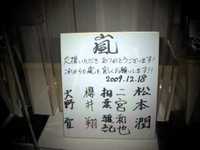 嵐
応援いただきありがとうございます!
これからも嵐を宜しくお願いします!!
2009.12.18
松本 潤
二宮和也
相葉雅紀
櫻井 翔
大野 智